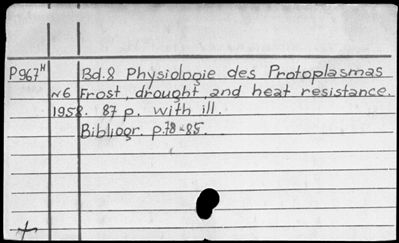 P967H Bd.8 Physiologie des Protoplasmas
N6 Frost, drought, and heat resistance.
1958. 87 p. with ill.
Bibliogr. p.78-85.